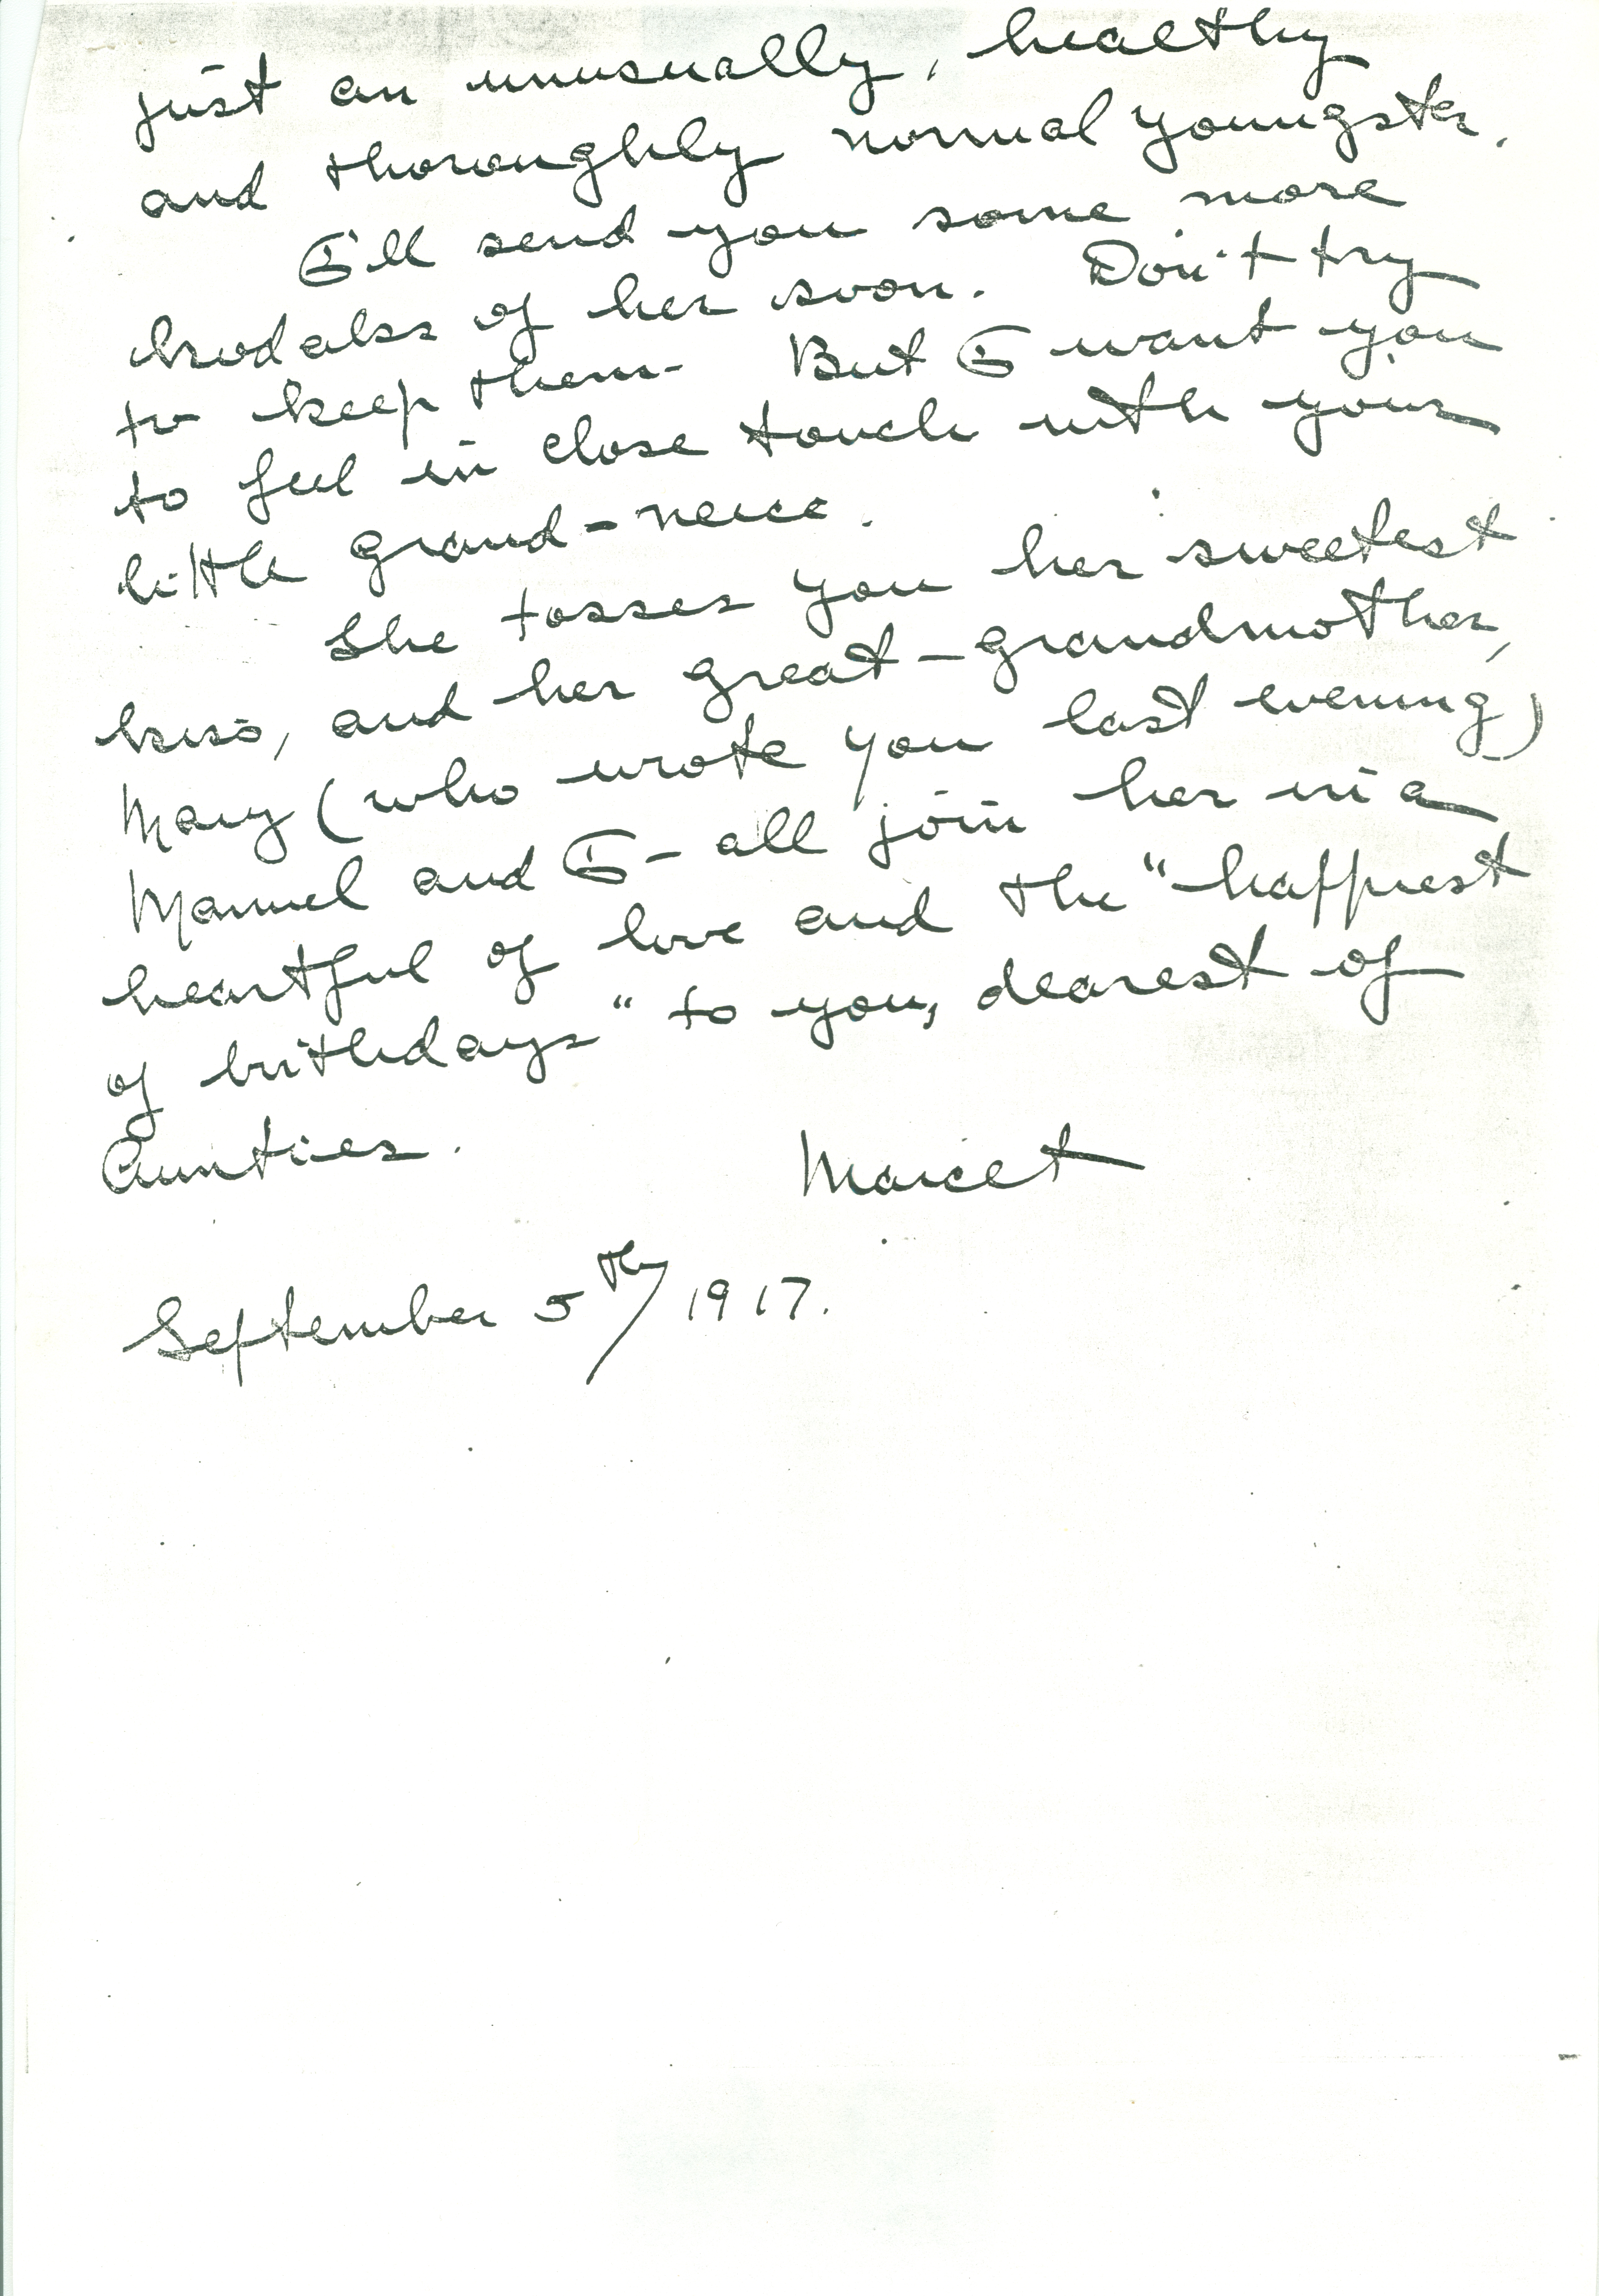 just an unusually, healthy
and thoroughly normal youngster.
I'll send you some more
kodaks of her soon. Don't try
to keep them. But I want you
to feel in close touch with your
little grand-neice.
She tosses you her sweetest
kiss, and her great-grandmother,
Mary (who wrote you last evening)
Manuel and I - all join her in a
heartful of love and the "happiest
of birthdays" to you, dearest of
Aunties.
Maicet
September 5th/1917.